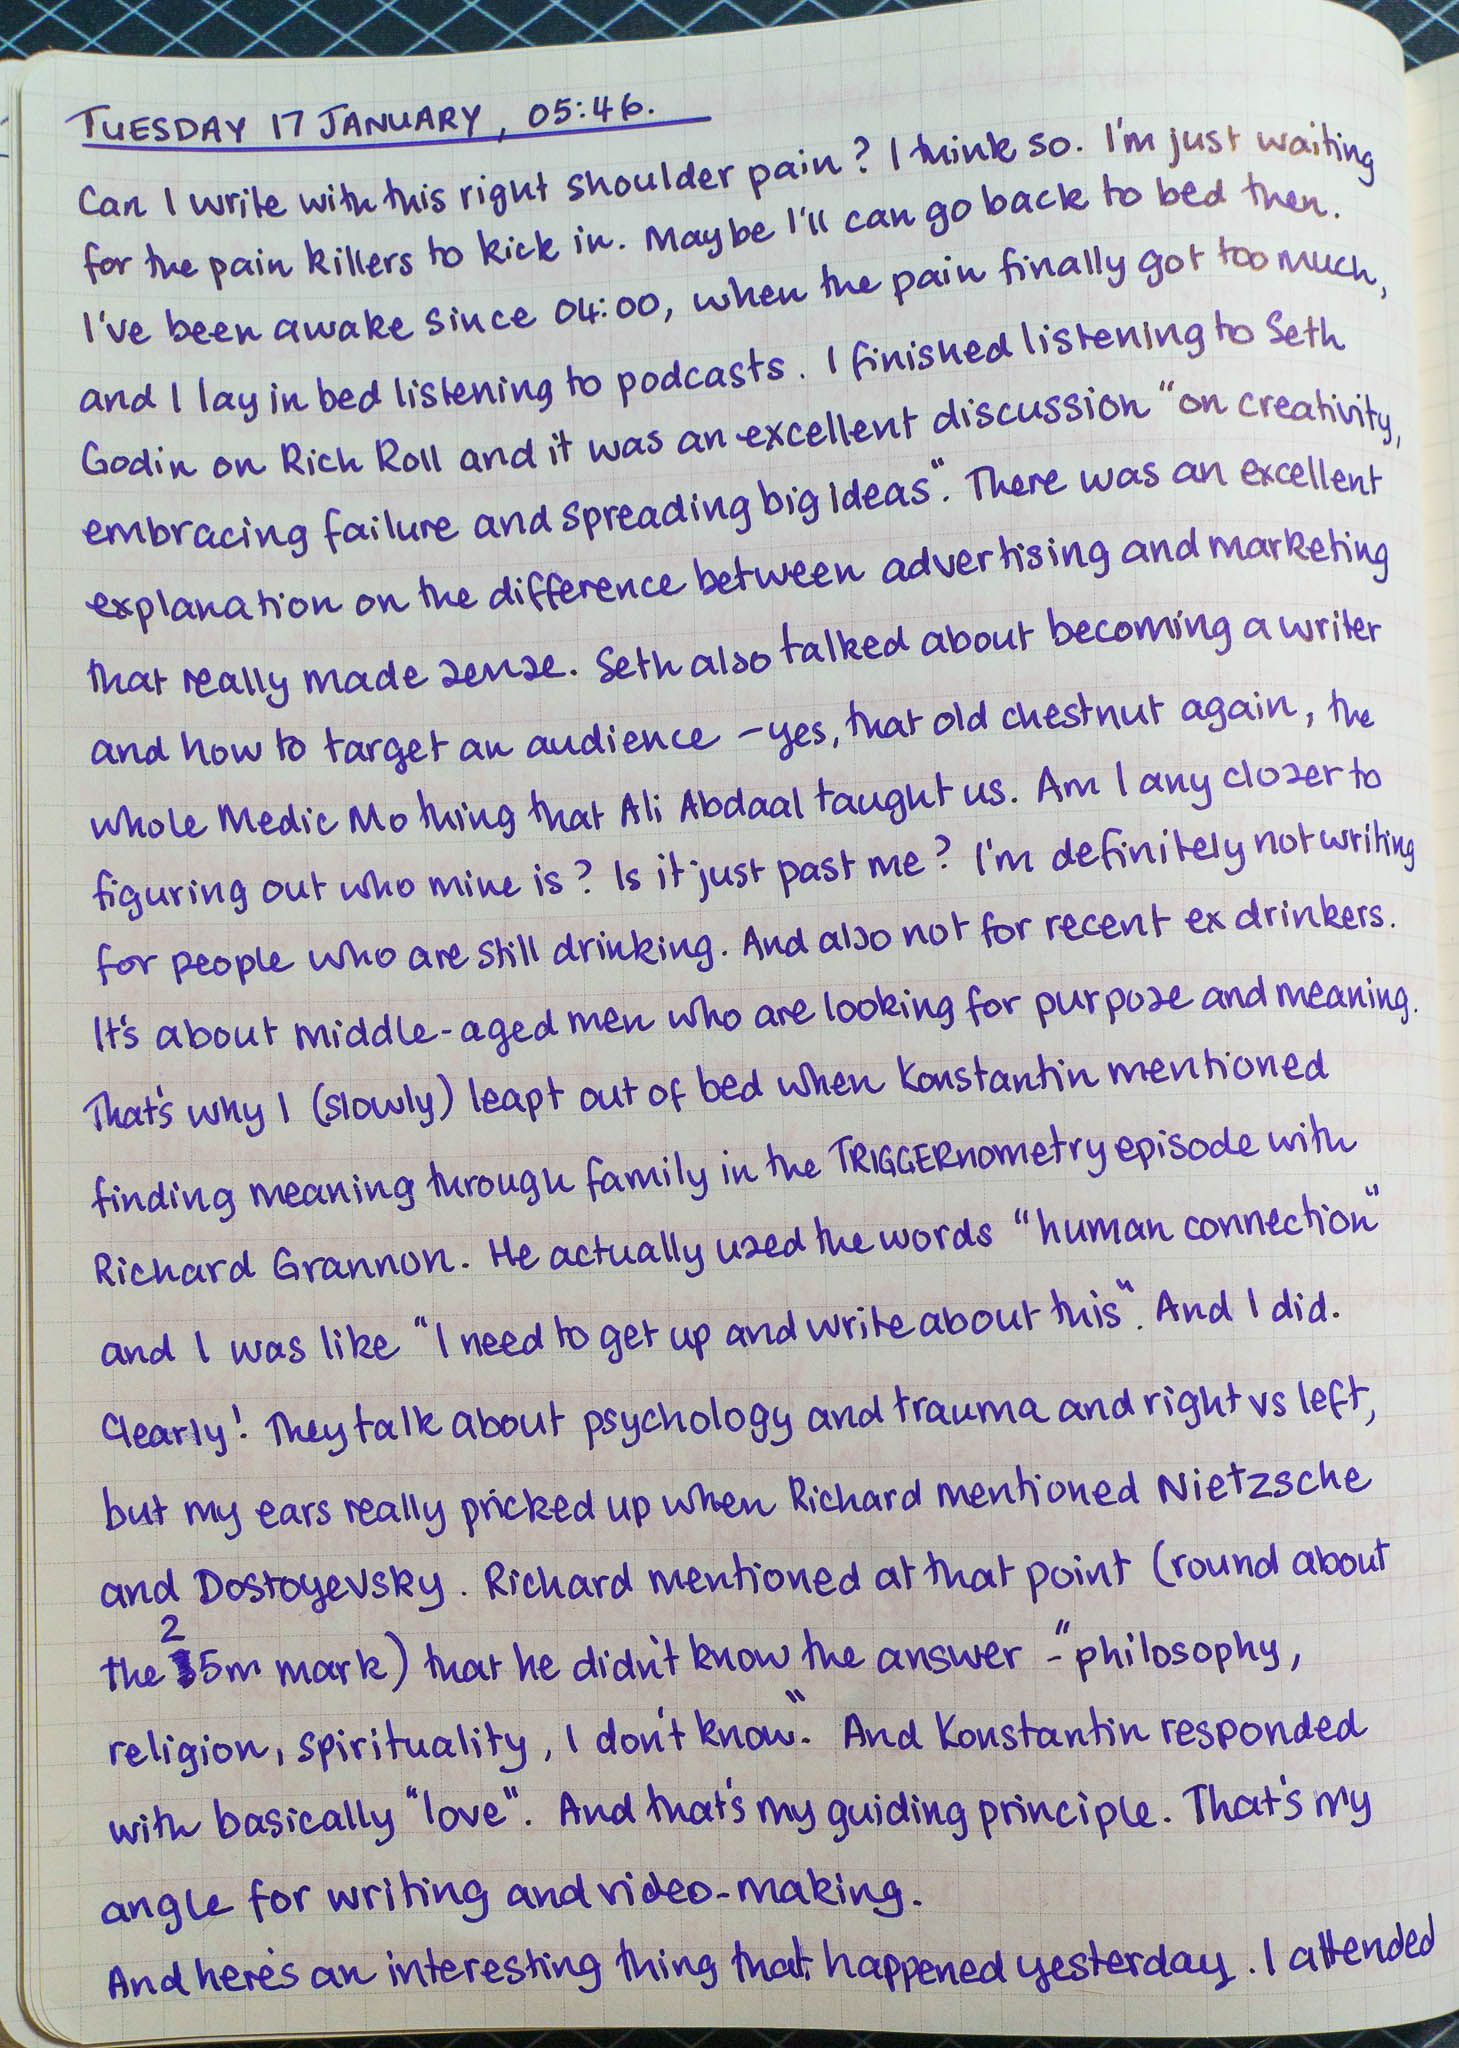 TUESDAY 17 JANUARY, 05:46.
Can I write with this right shoulder pain? I think so. I'm just waiting
for the pain killers to kick in. Maybe I'll can go back to bed then.
I've been awake since 04:00, when the pain finally got too much,
and I lay in bed listening to podcasts. I finished listening to Seth
Godin on Rich Roll and it was an excellent discussion "on creativity,
embracing failure and spreading big ideas". There was an excellent
explanation on the difference between advertising and marketing
that really made sense. Seth also talked about becoming a writer
and how to target an audience – yes, that old chestnut again, the
whole Medic Mo thing that Ali Abdaal taught us. Am I any closer to
figuring out who mine is? Is it just past me? I'm definitely not writing
for people who are still drinking. And also not for recent ex drinkers.
It's about middle-aged men who are looking for purpose and meaning.
That's why I (slowly) leapt out of bed when Konstantin mentioned
finding meaning through family in the TRIGGERnometry episode with
Richard Grannon. He actually used the words "human connection"
and I was like "I need to get up and write about this". And I did.
Clearly! They talk about psychology and trauma and right vs left,
but my ears really pricked up when Richard mentioned Nietzsche
and Dostoyevsky. Richard mentioned at that point (round about
the 25m mark) that he didn't know the answer – "philosophy,
religion, spirituality, I don't know." And Konstantin responded
with basically "love". And that's my guiding principle. That's my
angle for writing and video-making.
And here's an interesting thing that happened yesterday. I attended